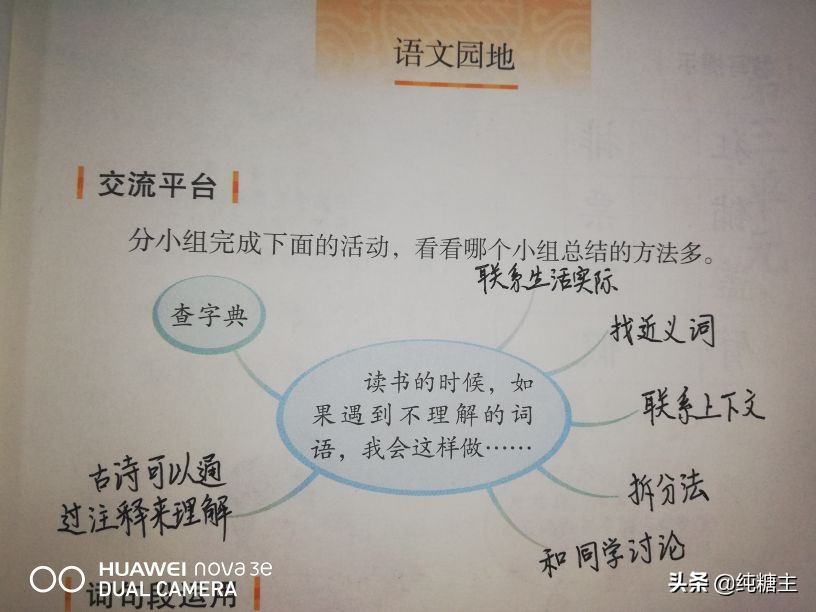 语文园地
交流平台
分小组完成下面的活动，看看哪个小组总结的方法多。
联系生活实际
查字典
找近义词
读书的时候，如
果遇到不理解的词
语，我会这样做……
联系上下文
古诗可以通
过注释来理解
拆分法
和同学讨论
HUAWEI nova 3e
DUAL CAMERA
词句段运用
头条 @纯糖主